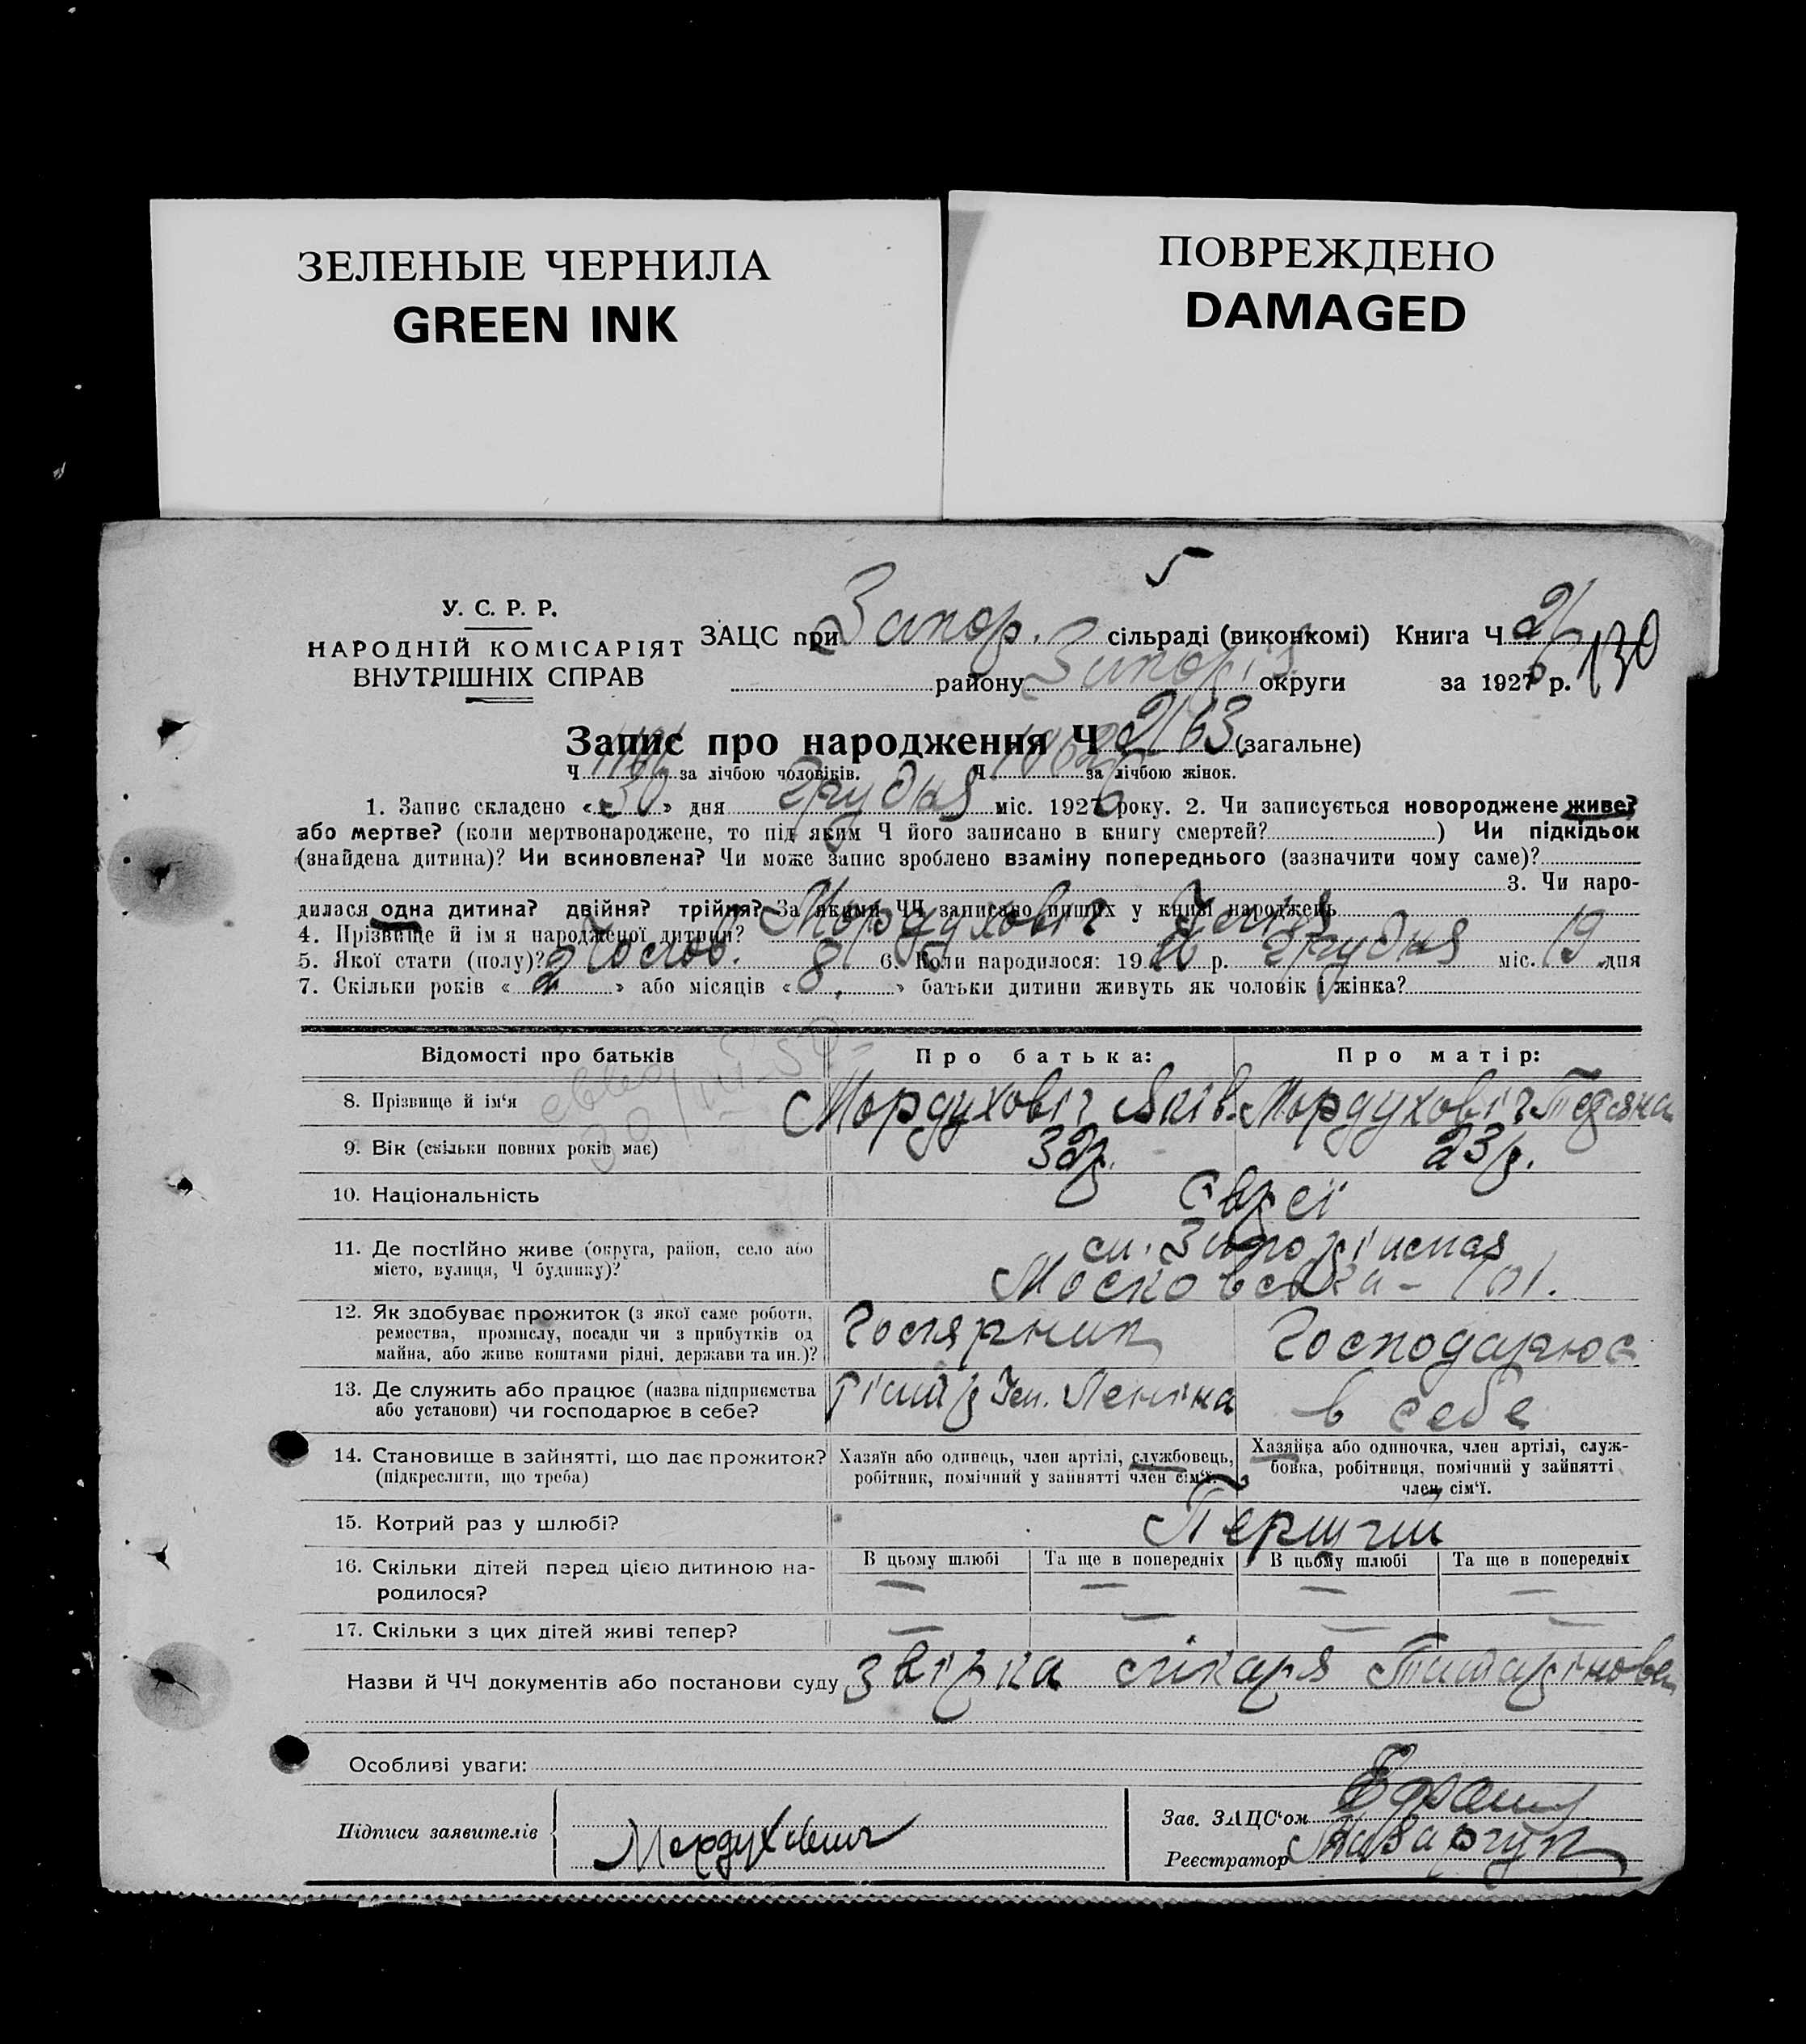 ЗЕЛЕНЫЕ ЧЕРНИЛА
GREEN INK
ПОВРЕЖДЕНО
DAMAGED
У. С. Р. Р.
НАРОДНІЙ КОМІСАРІЯТ
ВНУТРІШНІХ СПРАВ
ЗАЦС при Запор. сільраді (виконкомі) Книга Ч
району округи за 1926 р. 130
Запис про народження Ч 2163 (загальне)
Ч за лічбою чоловіків. Ч за лічбою жінок.
1. Запис складено «30» дня Грудня міс. 1926 року. 2. Чи записується новороджене живе?
або мертве? (коли мертвонароджене, то під яким Ч його записано в книгу смертей? ) Чи підкідьок
(знайдена дитина)? Чи всиновлена? Чи може запис зроблено взаміну попереднього (зазначити чому саме)?
3. Чи наро-
дилася одна дитина? двійня? трійня? За якими ЧЧ записано инших у книзі народжень
4. Прізвище й ім'я народженої дитини? Мордухович
5. Якої стати (полу)? Чолов. 6. Коли народилося: 1926 р. Грудня міс. 19 дня
7. Скільки років «2» або місяців «8» батьки дитини живуть як чоловік і жінка?
Відомості про батьків
Про батька:
Про матір:
8. Прізвище й ім'я Мордуховіч Яків Мордуховіч Тетяна
9. Вік (скільки повних років має) 32 р. 23 р.
10. Національність Євреї
11. Де постійно живе (округа, район, село або
місто, вулиця, Ч будинку)?
Московська - 101.
12. Як здобуває прожиток (з якої саме роботи,
ремества, промислу, посади чи з прибутків од
майна, або живе коштами рідні, держави та ин.)?
Господарює
13. Де служить або працює (назва підприємства
або установи) чи господарює в себе?
Ім. Леніна в себе
14. Становище в зайнятті, що дає прожиток?
(підкреслити, що треба)
Хазяїн або одинець, член артілі, службовець,
робітник, помічний у зайнятті член сім'ї.
Хазяйка або одиночка, член артілі, служ-
бовка, робітниця, помічний у зайнятті
член сім'ї.
15. Котрий раз у шлюбі? Перший
16. Скільки дітей перед цією дитиною на-
родилося?
В цьому шлюбі Та ще в попередніх В цьому шлюбі Та ще в попередніх
— — — —
17. Скільки з цих дітей живі тепер? — — — —
Назви й ЧЧ документів або постанови суду лікаря
Особливі уваги:
Підписи заявителів Мордухович
Зав. ЗАЦС'ом
Реєстратор